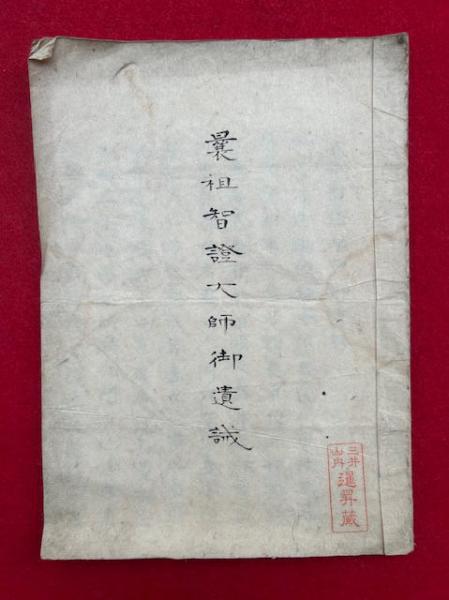 曩祖智證大師御遺誡
三井
山内
暹昇藏